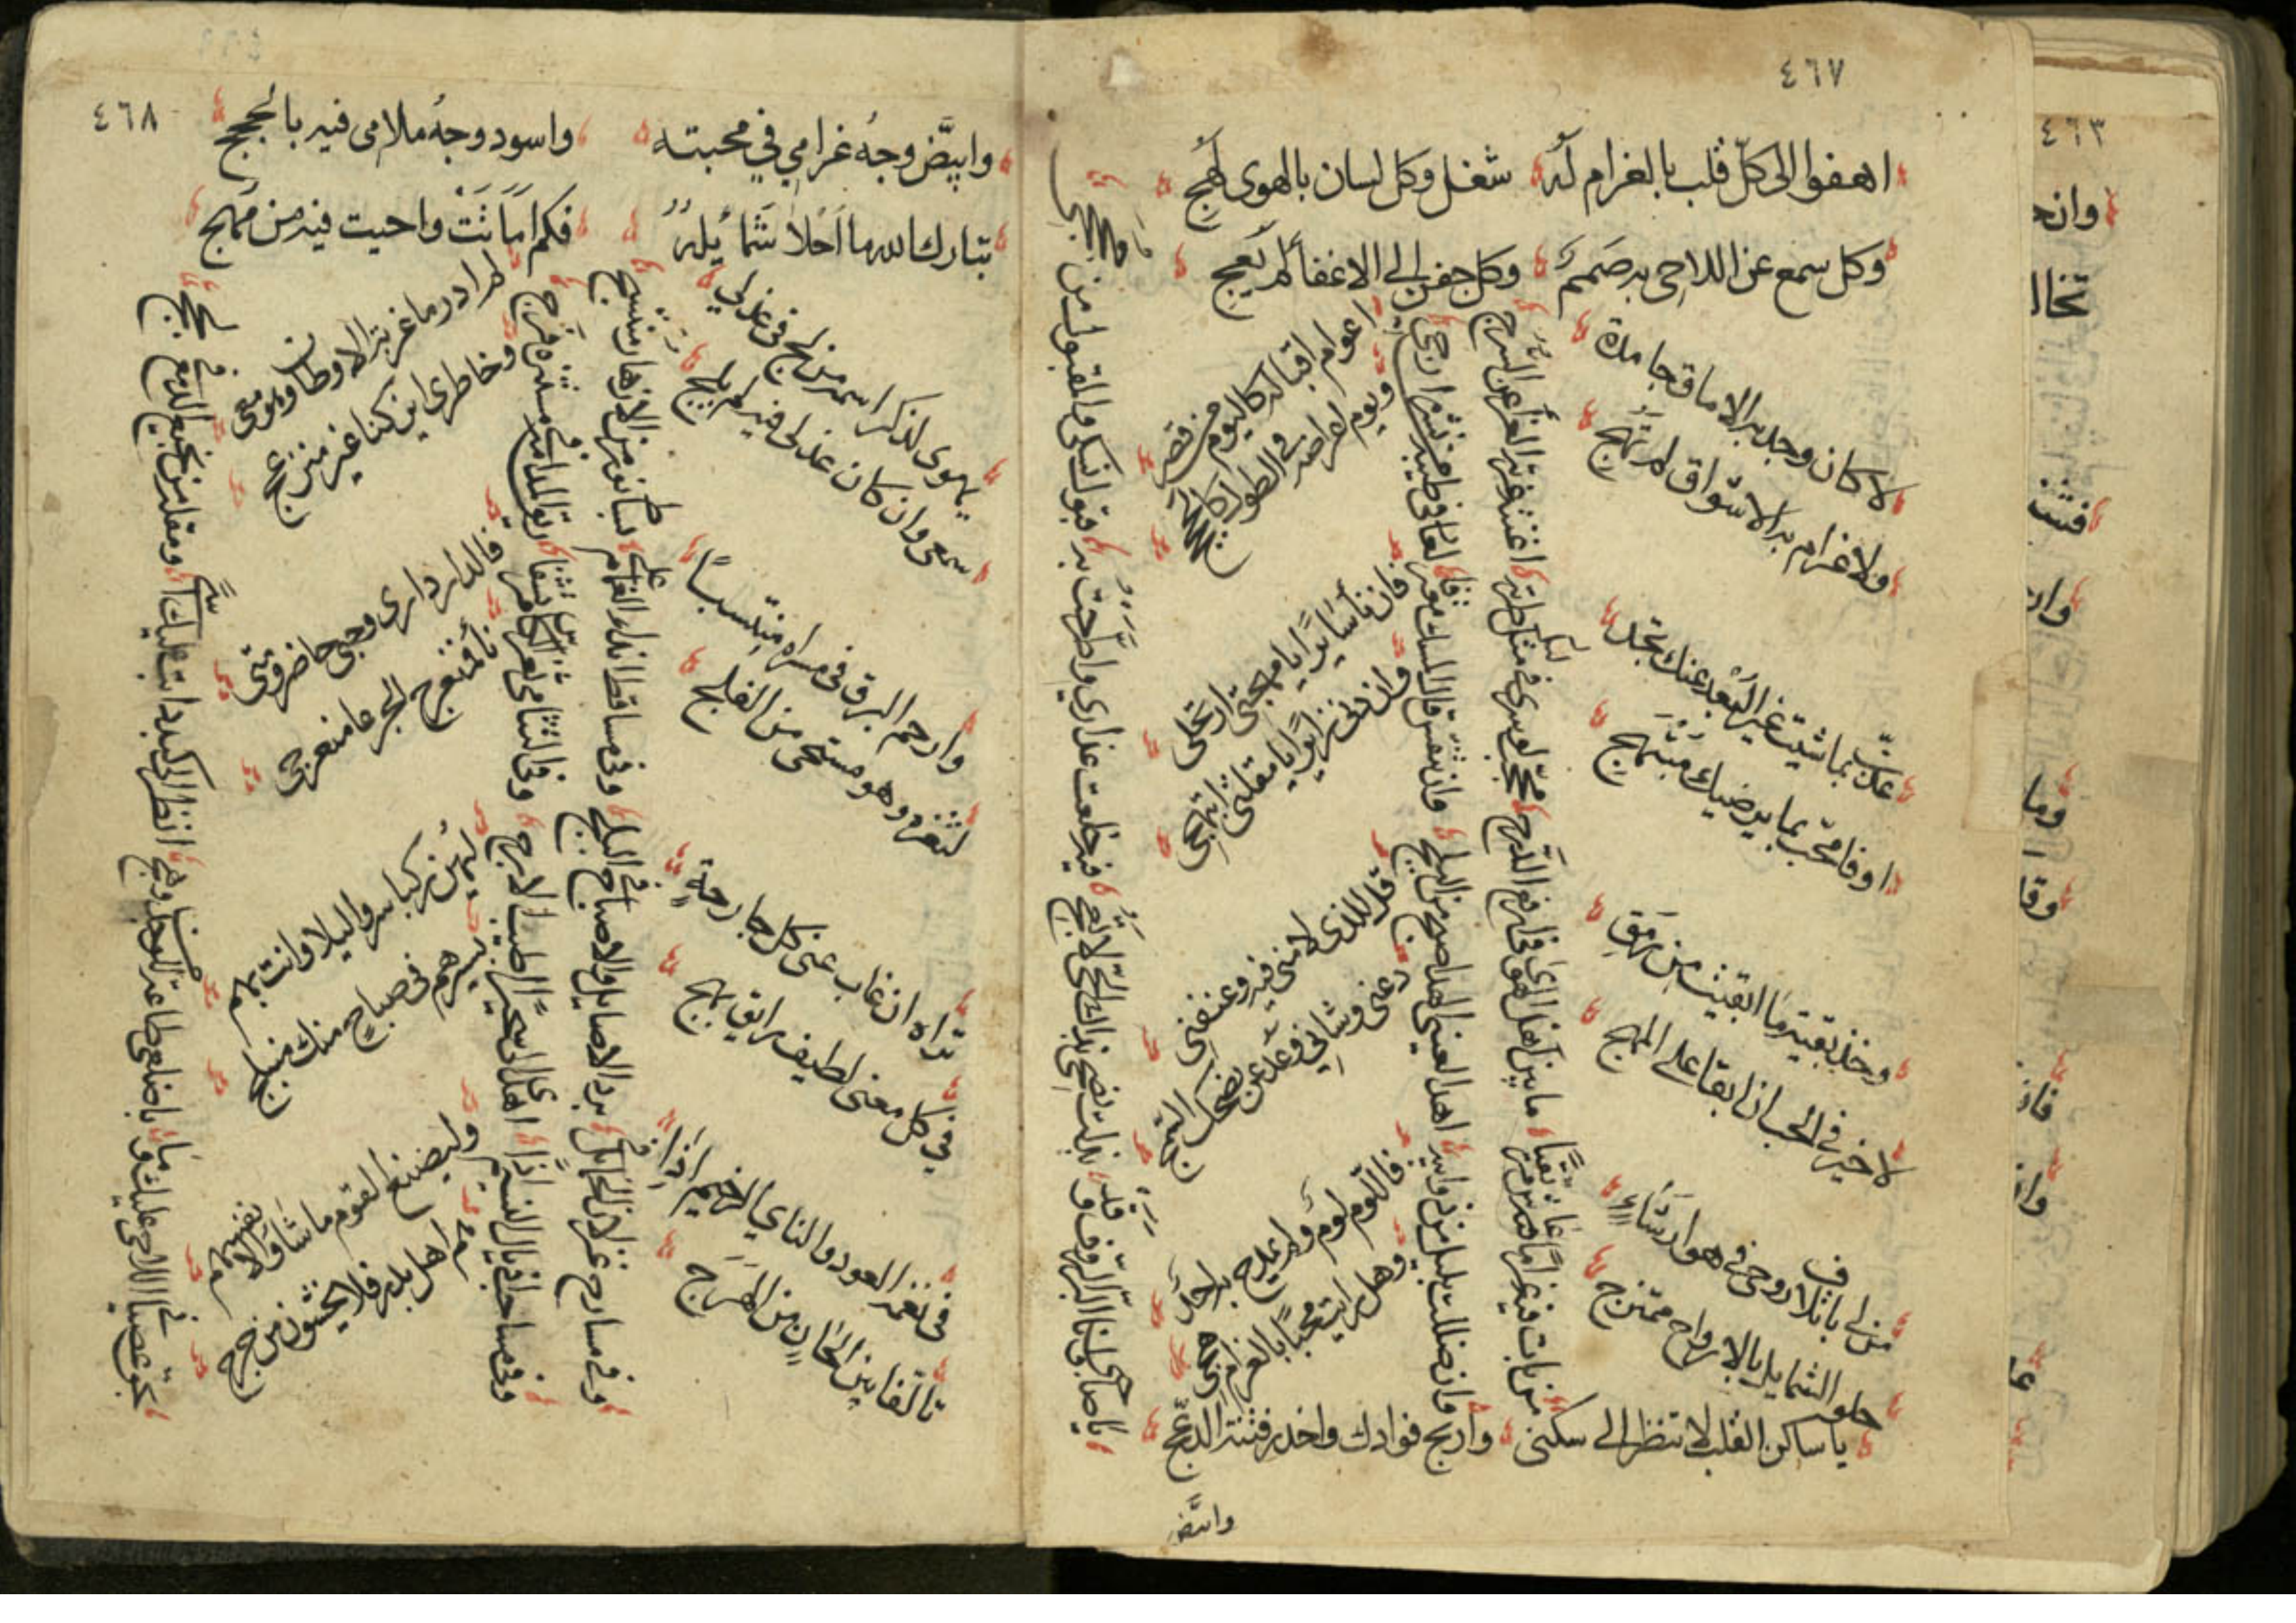 ٤٦٧
اهفوا الى كلّ قلب بالغرام لَهُ شغل وكل لسان بالهوى لَهِج
وكل سمع عن اللاحى به صَمَمٌ وكل جفن الى الاغفا لم يَعِج
لا كان وجد به الاماق جامدة
ولا غرام به الاشواق لم تَهِج
عذّب بما شيت غير البُعْد عنك تجد
اوفا محّب بما يرضيك مبتهج
وخذ بقية ما ابقيت مِن رَمَقِ
لا خير فى الحب ان ابقا على المهج
من لى باتلاف روحى فى هوا رشاءٍ
حلو الشمايل بالارواح ممتزج
من بات فيه غراماً عاش مرتقيًا ما بين اهل الهوى فى ارفع الدّرج
محجّب لو سرى فى مثل طرته اغنته غرته الغرا عن السرج
وان ضللت بليل من ذوايبه اهدا لعينى الهدا صبح من البلج
وان تنفس قال المسك معترفا لعارفى طيبه من نشره ارجى
اعوام اقباله كاليوم فى قصر
ويوم اعراضه فى الطول كالحجج
فان نأى سايرًا يا مهجتى ارتحلى
وان دنى زايرًا يا مقلتى ابتهجى
قل للذى لامنى فيه وعنفنى
دعنى وشانى وعَد عن نصحك السمج
فاللّوم لومٌ ولم يمدح به احدٌ
وهل رايت محبًا بالغرام هجى
يا ساكن القلب لا تنظر الى سكنى واربح فوادك واحذر فتنة الدعج
يا صاحبى وانا البّر الروف وقد بذلت نصحى بذاك الحّى لا تعج
فيه خلعت عذارى واطّرحت به قبول نسكى والمقبول من حججى
وابيّض
٤٦٨
وابيّض وجهُ غرامى فى محبته واسود وجهُ ملامى فيه بالحجج
تبارك الله ما احلا شمايلهُ فكم اَمَاتَتْ واحيت فيه من مهج
يهوى لذكر اسمه من لج فى عذلى
سمعى وان كان عذلى فيه لم يلج
وارحم البرق فى مسراه منتسبًا
لثغره وهو مستحى من الفلج
تراه ان غاب عنى كل جارحةٍ
فى كل معنى لطيف رايق بهج
فى نغمة العود والناى الرخيم اذا
تالفا بين الحانٍ من الهزج
وفى مسارح غزلان الخمايل فى برد الاصايل والاصباح فى البلج
وفى مساقط انداء الغمام على بساط نور من الازهار منتسج
وفى مساحب اذيال النسيم اذا اهدا الى سحيرًا اطيب الارج
وفى التثامى ثغر الكاس مرتشفا ريق المدامة فى مستنزه فرج
لم ادر ما غربة الاوطان وهو معى
وخاطرى اين كنا غير منزعج
فالدار دارى وحبى حاضر ومتى
بدا فمنعرج الجرعا منعرجى
ليهن ركبا سروا ليلا وانت بهم
بسيرهم فى صباح منك منبلج
وليصنع القوم ما شاوا لانفسهم
هم اهل بدر فلا يخشون من حرج
بحق عصيانى اللاحى عليك وما باضلعى طاعة للوجد من وهج
انظر الى كبد ذابت عليك اسى ومقلة من نجيع الدمع فى لجج
٤٦٣